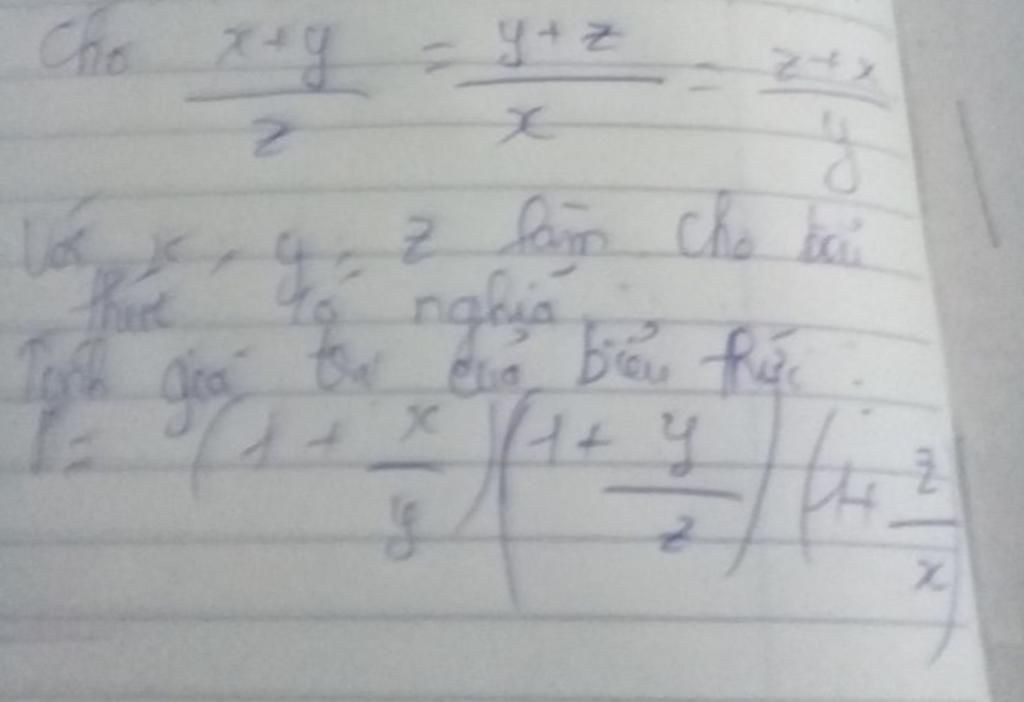 Cho x+y/z = y+z/x = z+x/y
Với x, y, z làm cho biểu
thức có nghĩa
Tính giá trị của biểu thức:
P = (1 + x/y)(1 + y/z)(1 + z/x)